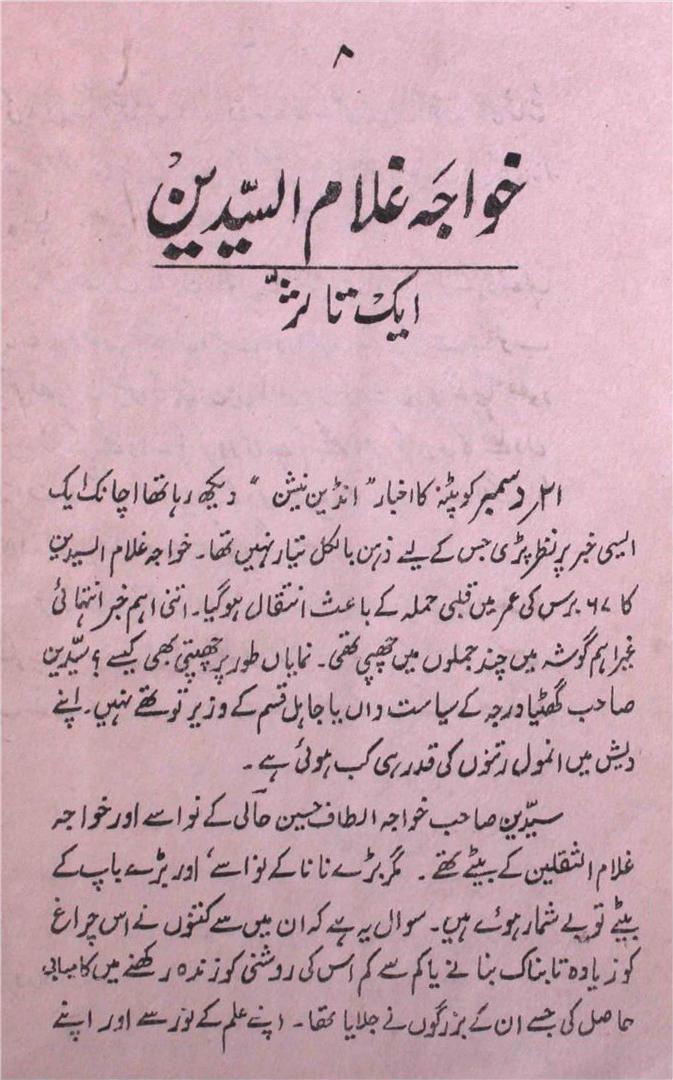 ۸
خواجہ غلام السیّدین
ایک تاثر
۲۱؍ دسمبر کو پٹنہ کا اخبار "انڈین نیشن" دیکھ رہا تھا اچانک ایک
ایسی خبر پر نظر پڑی جس کے لیے ذہن بالکل تیار نہیں تھا۔ خواجہ غلام السیدین
کا ۶۷ برس کی عمر میں قلبی حملہ کے باعث انتقال ہوگیا۔ اتنی اہم خبر انتہائی
غیر اہم گوشہ میں چند جملوں میں چھپی تھی۔ نمایاں طور پر چھپتی بھی کیسے؟ سیّدین
صاحب گھٹیا درجہ کے سیاست داں یا جاہل قسم کے وزیر تو تھے نہیں۔ اپنے
دیش میں انمول رتنوں کی قدر ہی کب ہوئی ہے۔
سیّدین صاحب خواجہ الطاف حسین حالؔی کے نواسے اور خواجہ
غلام الثقلین کے بیٹے تھے۔ مگر بڑے نانا کے نواسے، اور بڑے باپ کے
بیٹے تو بے شمار ہوئے ہیں۔ سوال یہ ہے کہ ان میں سے کتنوں نے اس چراغ
کو زیادہ تابناک بنانے یا کم سے کم اس کی روشنی کو زندہ رکھنے میں کامیابی
حاصل کی جسے ان کے بزرگوں نے جلایا تھا۔ اپنے علم کے نور سے اور اپنے